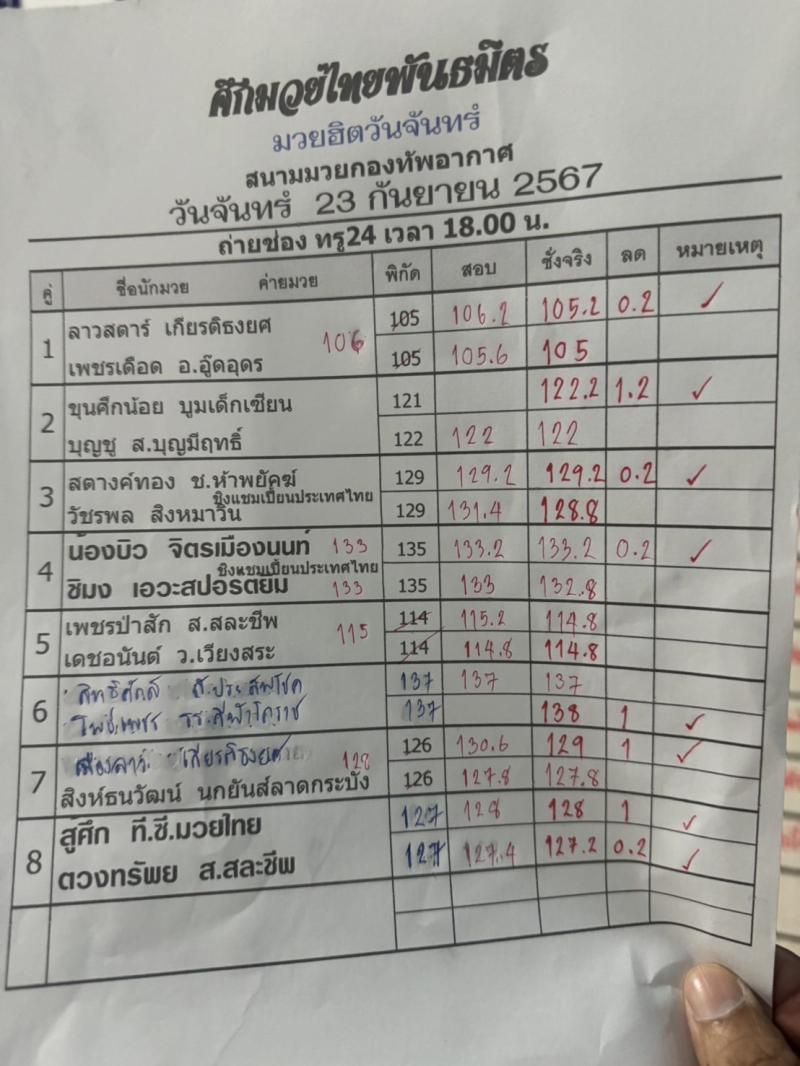 ศึกมวยไทยพันธมิตร
มวยฮิตวันจันทร์
สนามมวยกองทัพอากาศ
วันจันทร์ 23 กันยายน 2567
ถ่ายช่อง ทรู24 เวลา 18.00 น.
คู่ ชื่อนักมวย ค่ายมวย พิกัด สอบ ชั่งจริง ลด หมายเหตุ
1 ลาวสตาร์ เกียรติธงยศ 106 105 106.2 105.2 0.2 ✓
เพชรเดือด อ.อู๊ดอุดร 105 105.6 105
2 ขุนศึกน้อย บูมเด็กเซียน 121 122.2 1.2 ✓
บุญชู ส.บุญมีฤทธิ์ 122 122 122
3 สตางค์ทอง ช.ห้าพยัคฆ์ 129 129.2 129.2 0.2 ✓
ชิงแชมเปี้ยนประเทศไทย
วัชรพล สิงหมาวิน 129 131.4 128.8
4 น้องบิว จิตรเมืองนนท์ 133 135 133.2 133.2 0.2 ✓
ชิงแชมเปี้ยนประเทศไทย
ชิมง เอวะสปอร์ตยิม 133 135 133 132.8
5 เพชรป่าสัก ส.สละชีพ 115 114 115.2 114.8
เดชอนันต์ ว.เวียงสระ 114 114.8 114.8
6 สิทธิศักดิ์ 137 137 137
137 138 1 ✓
7 เมืองลาว เกียรติธงยศ 128 126 130.6 129 1 ✓
สิงห์ธนวัฒน์ นกยันส์ลาดกระบัง 126 127.8 127.8
8 สู้ศึก ที.ซี.มวยไทย 127 128 128 1 ✓
ดวงทรัพย ส.สละชีพ 127 127.4 127.2 0.2 ✓